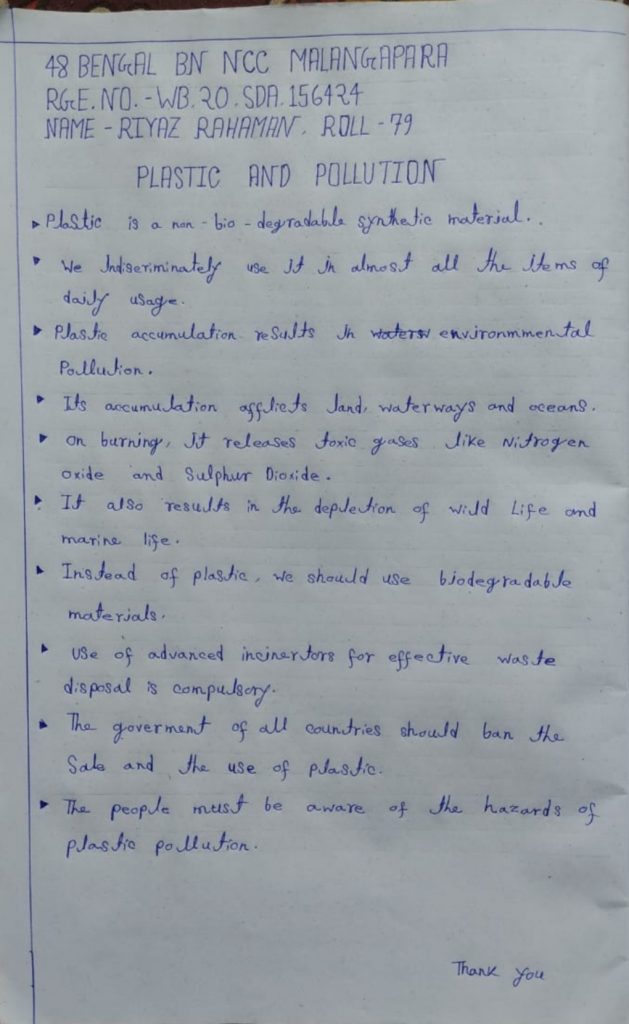 48 BENGAL BN NCC MALANGAPARA
RGE. NO. - WB. 20. SDA. 156424
NAME - RIYAZ RAHAMAN. ROLL - 79
PLASTIC AND POLLUTION
▸ Plastic is a non - bio - degradable synthetic material..
▸ We Indiseriminately use it in almost all the items of
daily usage.
▸ Plastic accumulation results in waters environmmental
Pollution.
▸ Its accumulation afflicts land, waterways and oceans.
▸ on burning, it releases toxic gases like Nitrogen
oxide and Sulphur Dioxide.
▸ It also results in the depletion of wild Life and
marine life.
▸ Instead of plastic, we should use biodegradable
materials.
▸ use of advanced incinertors for effective waste
disposal is compulsory.
▸ The goverment of all countries should ban the
Sale and the use of plastic.
▸ The people must be aware of the hazards of
plastic pollution.
Thank you